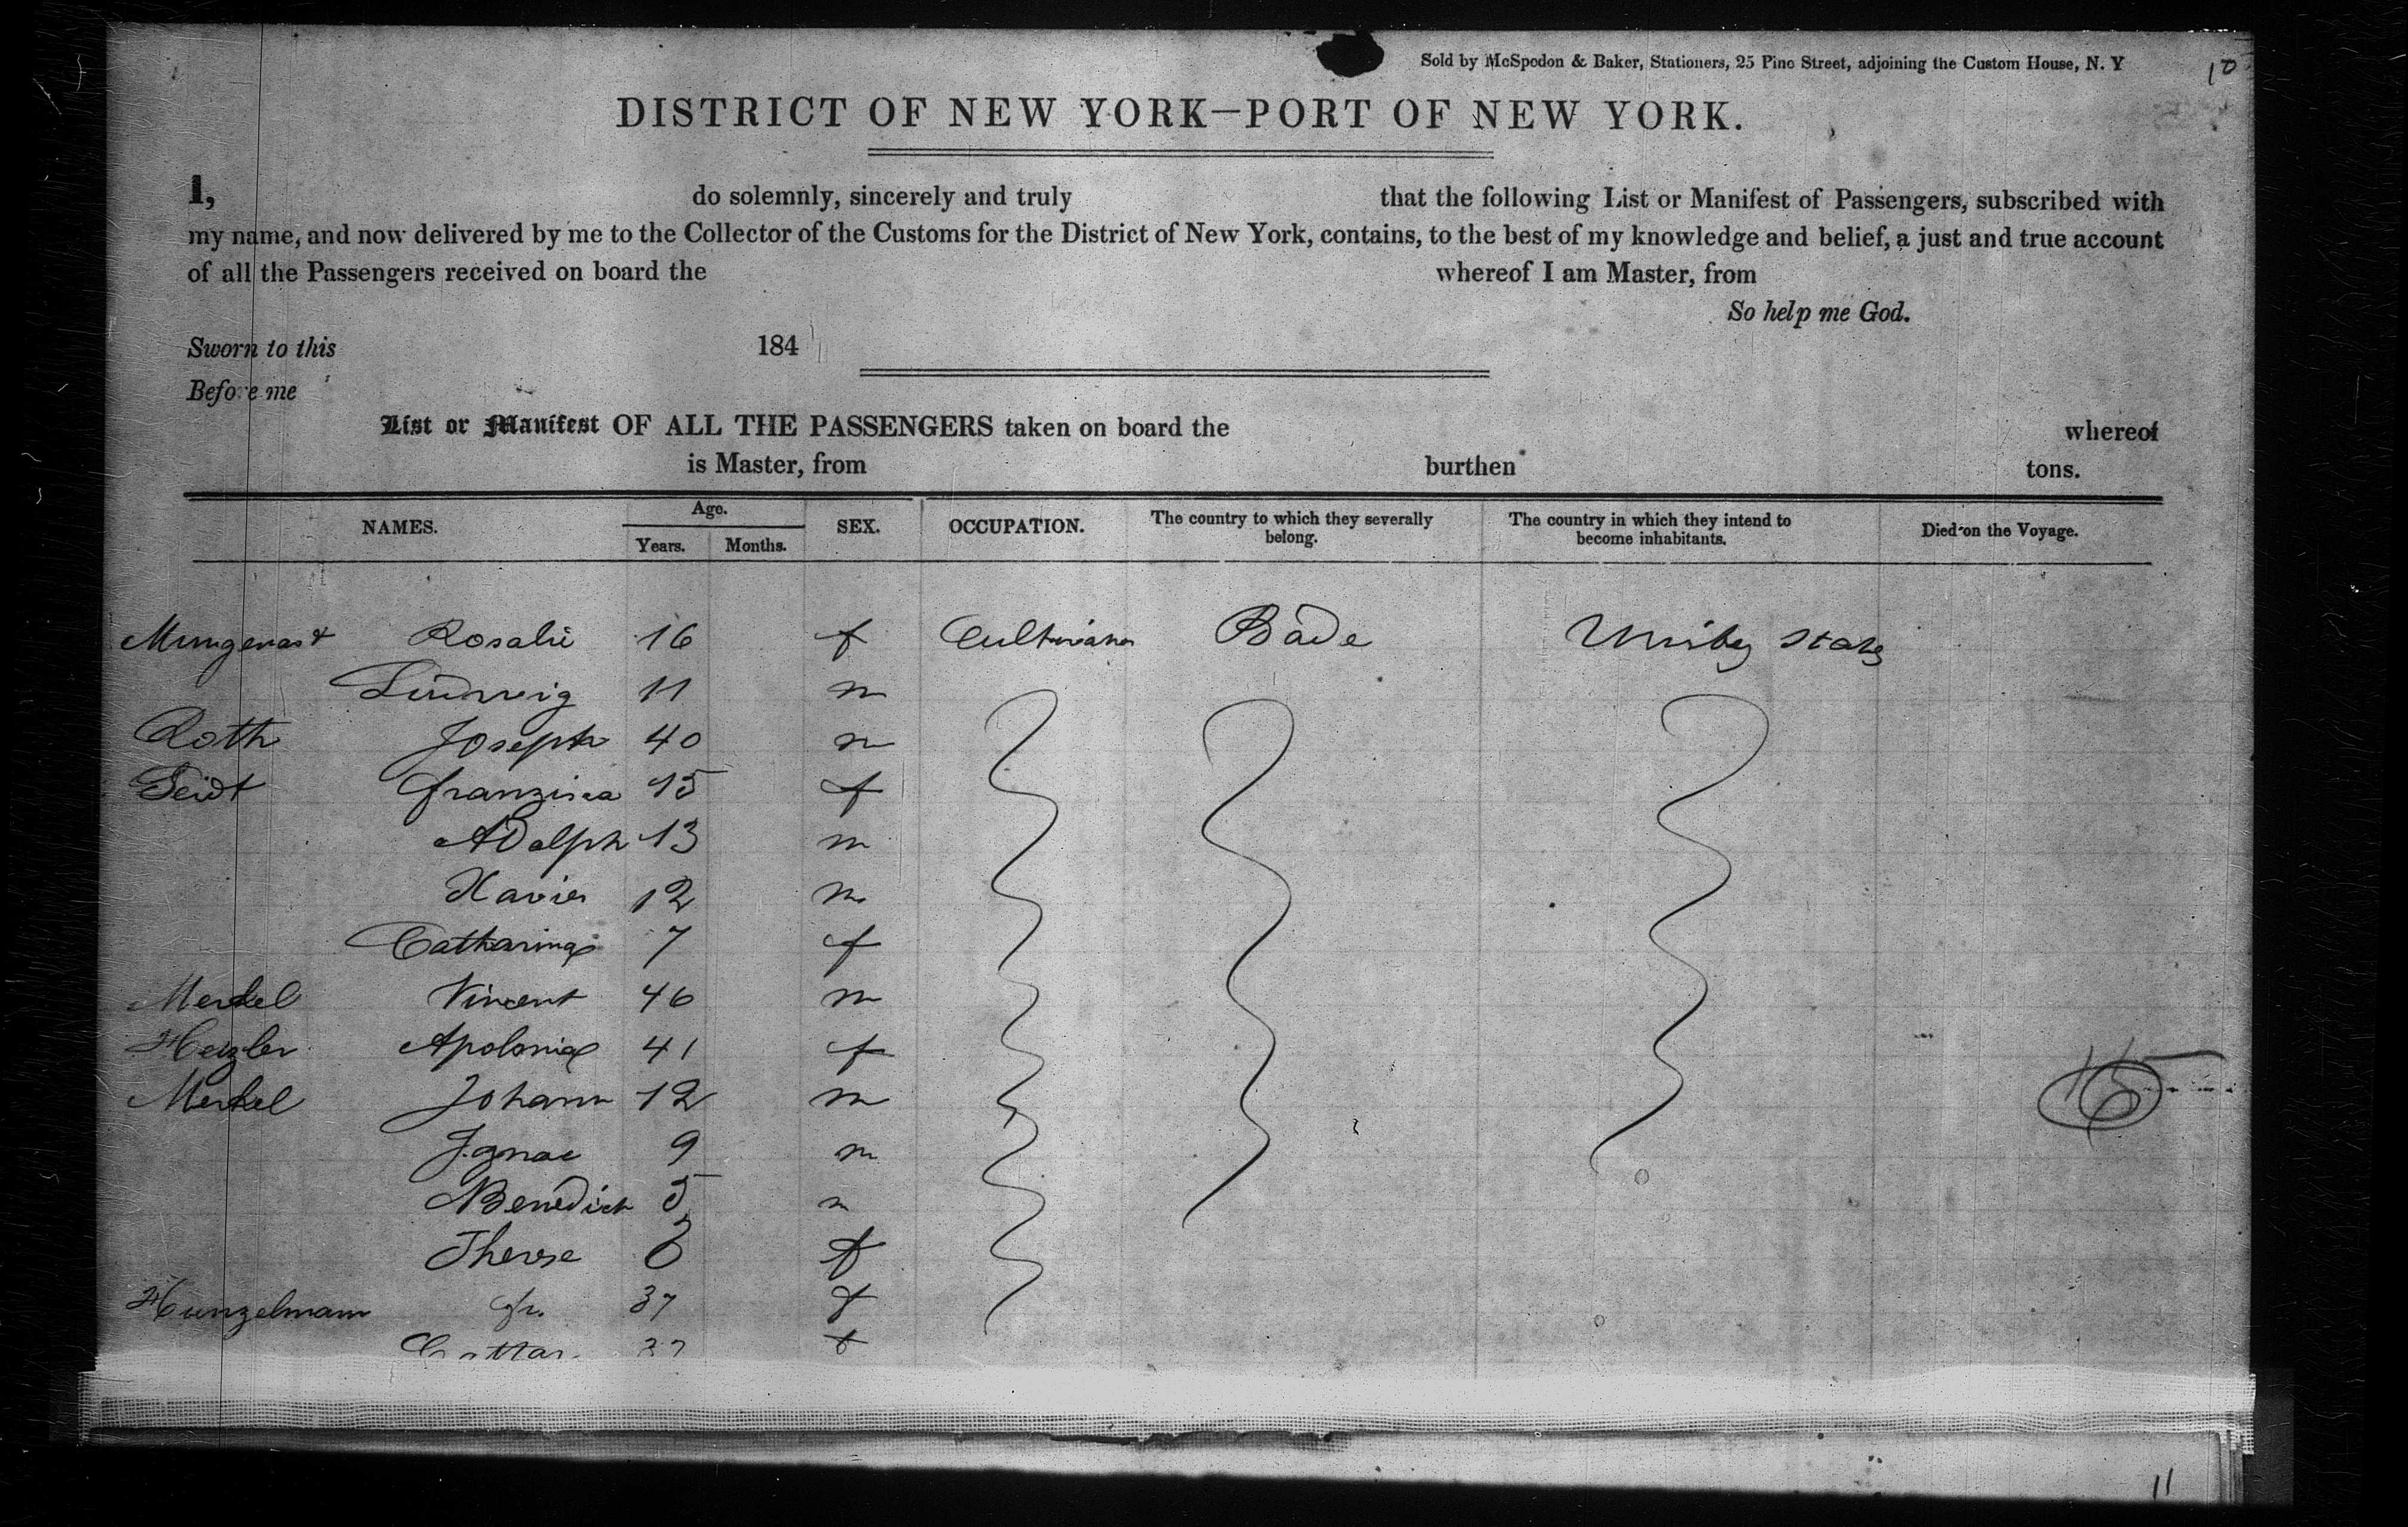 Sold by McSpedon & Baker, Stationers, 25 Pine Street, adjoining the Custom House, N. Y
10
DISTRICT OF NEW YORK—PORT OF NEW YORK.
I, do solemnly, sincerely and truly that the following List or Manifest of Passengers, subscribed with
my name, and now delivered by me to the Collector of the Customs for the District of New York, contains, to the best of my knowledge and belief, a just and true account
of all the Passengers received on board the whereof I am Master, from
So help me God.
Sworn to this 184
Before me
List or Manifest OF ALL THE PASSENGERS taken on board the whereof
is Master, from burthen tons.
NAMES. Age. Years. Months. SEX. OCCUPATION. The country to which they severally belong. The country in which they intend to become inhabitants. Died on the Voyage.
Mungenast Rosalie 16 f Bade
Ludwig 11 m
Roth Joseph 40 m
Franzisca 15 f
Adolph 13 m
Xavier 12 m
Catharina 7 f
Merkel Vincent 46 m
Apolonia 41 f
Merkel Johann 12 m
Ignac 9 m
Benedict 5 m
Therese f
Hunzelmann fr. 37 f
f
11